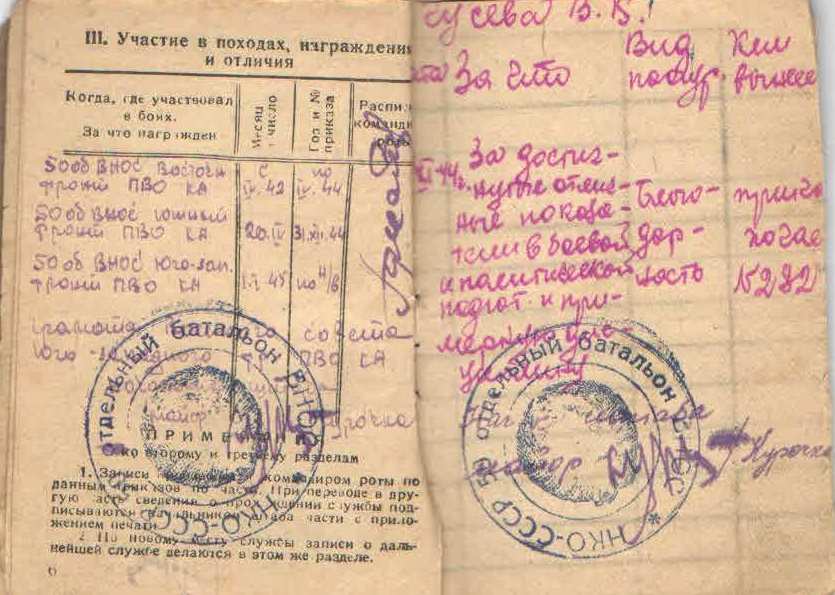 III. Участие в походах, награждения
и отличия
Когда, где участвовал
в боях.
За что награжден
Месяц
и число
Год и №
приказа
50 об ВНОС Восточн
фронт ПВО КА
с
IV. 42
по
IV. 44
50 об ВНОС южный
фронт ПВО КА
20.IV
31.XII.44
50 об ВНОС юго-зап.
фронт ПВО КА
1.I.45
по н/в
грамота совета
Юго-западного ПВО КА
ПРИМЕЧАНИЕ
ко второму и третьему разделам
1. Записи командиром роты по
данным приказов по части. При переводе в дру-
гую часть сведения о прохождении службы под-
писываются начальником штаба части с прило-
жением печати.
2. По новому месту службы записи о даль-
нейшей службе делаются в этом же разделе.
6
отдельный батальон ВНОС
НКО-СССР
сусева В.В.
За что
Вид
поощр.
Кем
вынесе
За достиг-
нутые отлич-
ные показа-
тели в боевой
и политической
подгот. и при-
мерную дис-
циплину
Благо-
дар-
ность
приказ
№282
Нач. штаба
майор Курочка
50 отдельный батальон ВНОС
НКО-СССР